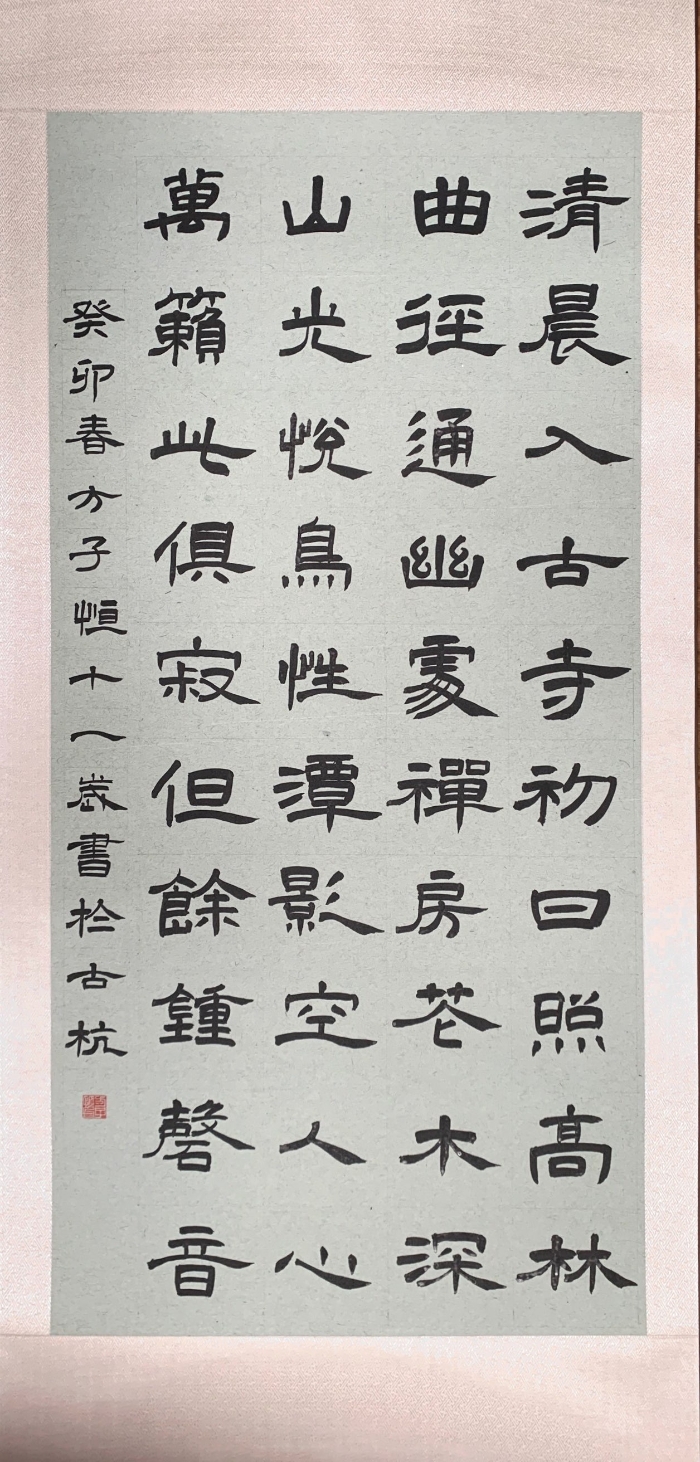 清晨入古寺初日照高林
曲徑通幽處禪房花木深
山光悅鳥性潭影空人心
萬籟此俱寂但餘鍾磬音
癸卯春方子恒十八歲書於古杭